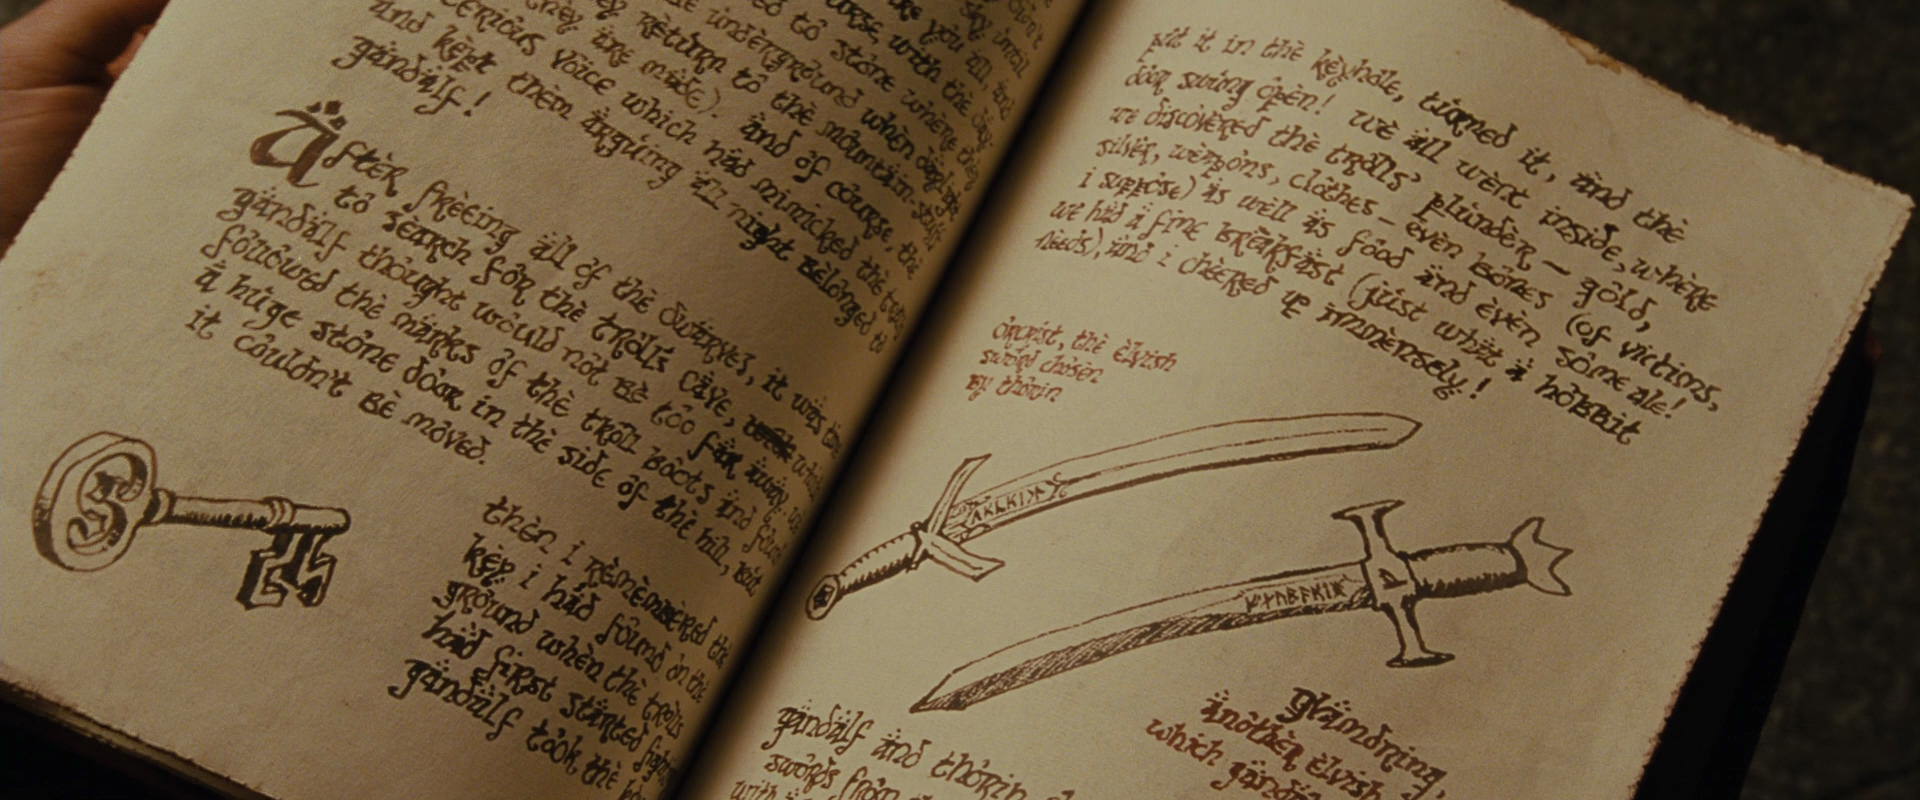 sky until
are you all, and
course, with the
to stone where they
the underground when
they return to the mountain-stuff
they are made). and of course, the
voice which had mimicked the trolls
and kept them arguing all night belonged to
gandalf!
after freeing all of the dwarves, it was
to search for the trolls' cave,
gandalf thought would not be too far away. we
followed the marks of the troll boots and found
a huge stone door in the side of the hill, but
it couldn't be moved.
then i remembered the
key i had found on the
ground when the trolls
had first started
gandalf took the
put it in the keyhole, turned it, and the
door swung open! we all went inside, where
we discovered the trolls' plunder – gold,
silver, weapons, clothes – even bones (of victims,
i suppose) as well as food and even some ale!
we had a fine breakfast (just what a hobbit
needs), and i cheered up immensely!
orcrist, the elvish
sword chosen
by thorin
glamdring,
another elvish
which
gandalf and thorin
swords from
with